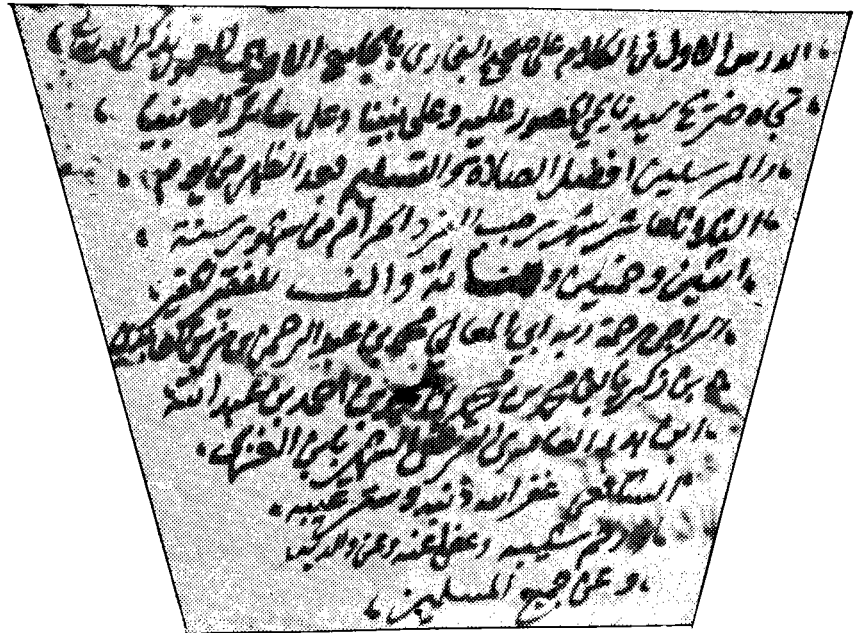 الدرس الاول في الكلام على صحيح البخاري بالجامع الاموي المعمور بذكر الله تعالى
تجاه ضريح سيدنا يحيى الحصور عليه وعلى نبينا وعلى سائر الانبيا
والمرسلين افضل الصلاة والتسليم بعد الظهر من يوم
الثلاثا عاشر شهر رجب الفرد الحرام من شهور سنة
اثنين وخمسين ومائة والف للفقير الحقير
الراجي رحمة ربه ابي المعالي محمد بن عبد الرحمن بن
بن زكريا بن محمد بن محمد بن احمد بن عبد الله
ابن بدر العامري الشهير بابن الغزي
الشافعي غفر الله ذنبه وستر عيبه
ورحم شيبه وعفى عنه وعن والديه
وعن جميع المسلمين